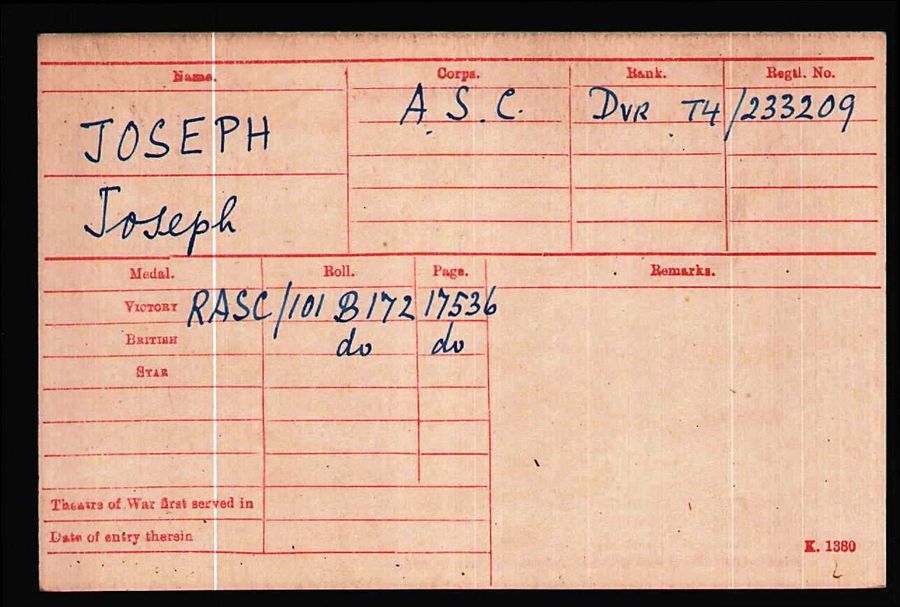 Name. Corps. Rank. Regtl. No.
JOSEPH A.S.C. DVR T4/233209
Joseph
Medal. Roll. Page. Remarks.
VICTORY RASC/101 B172 17536
BRITISH do do
STAR
Theatre of War first served in
Date of entry therein
K. 1380